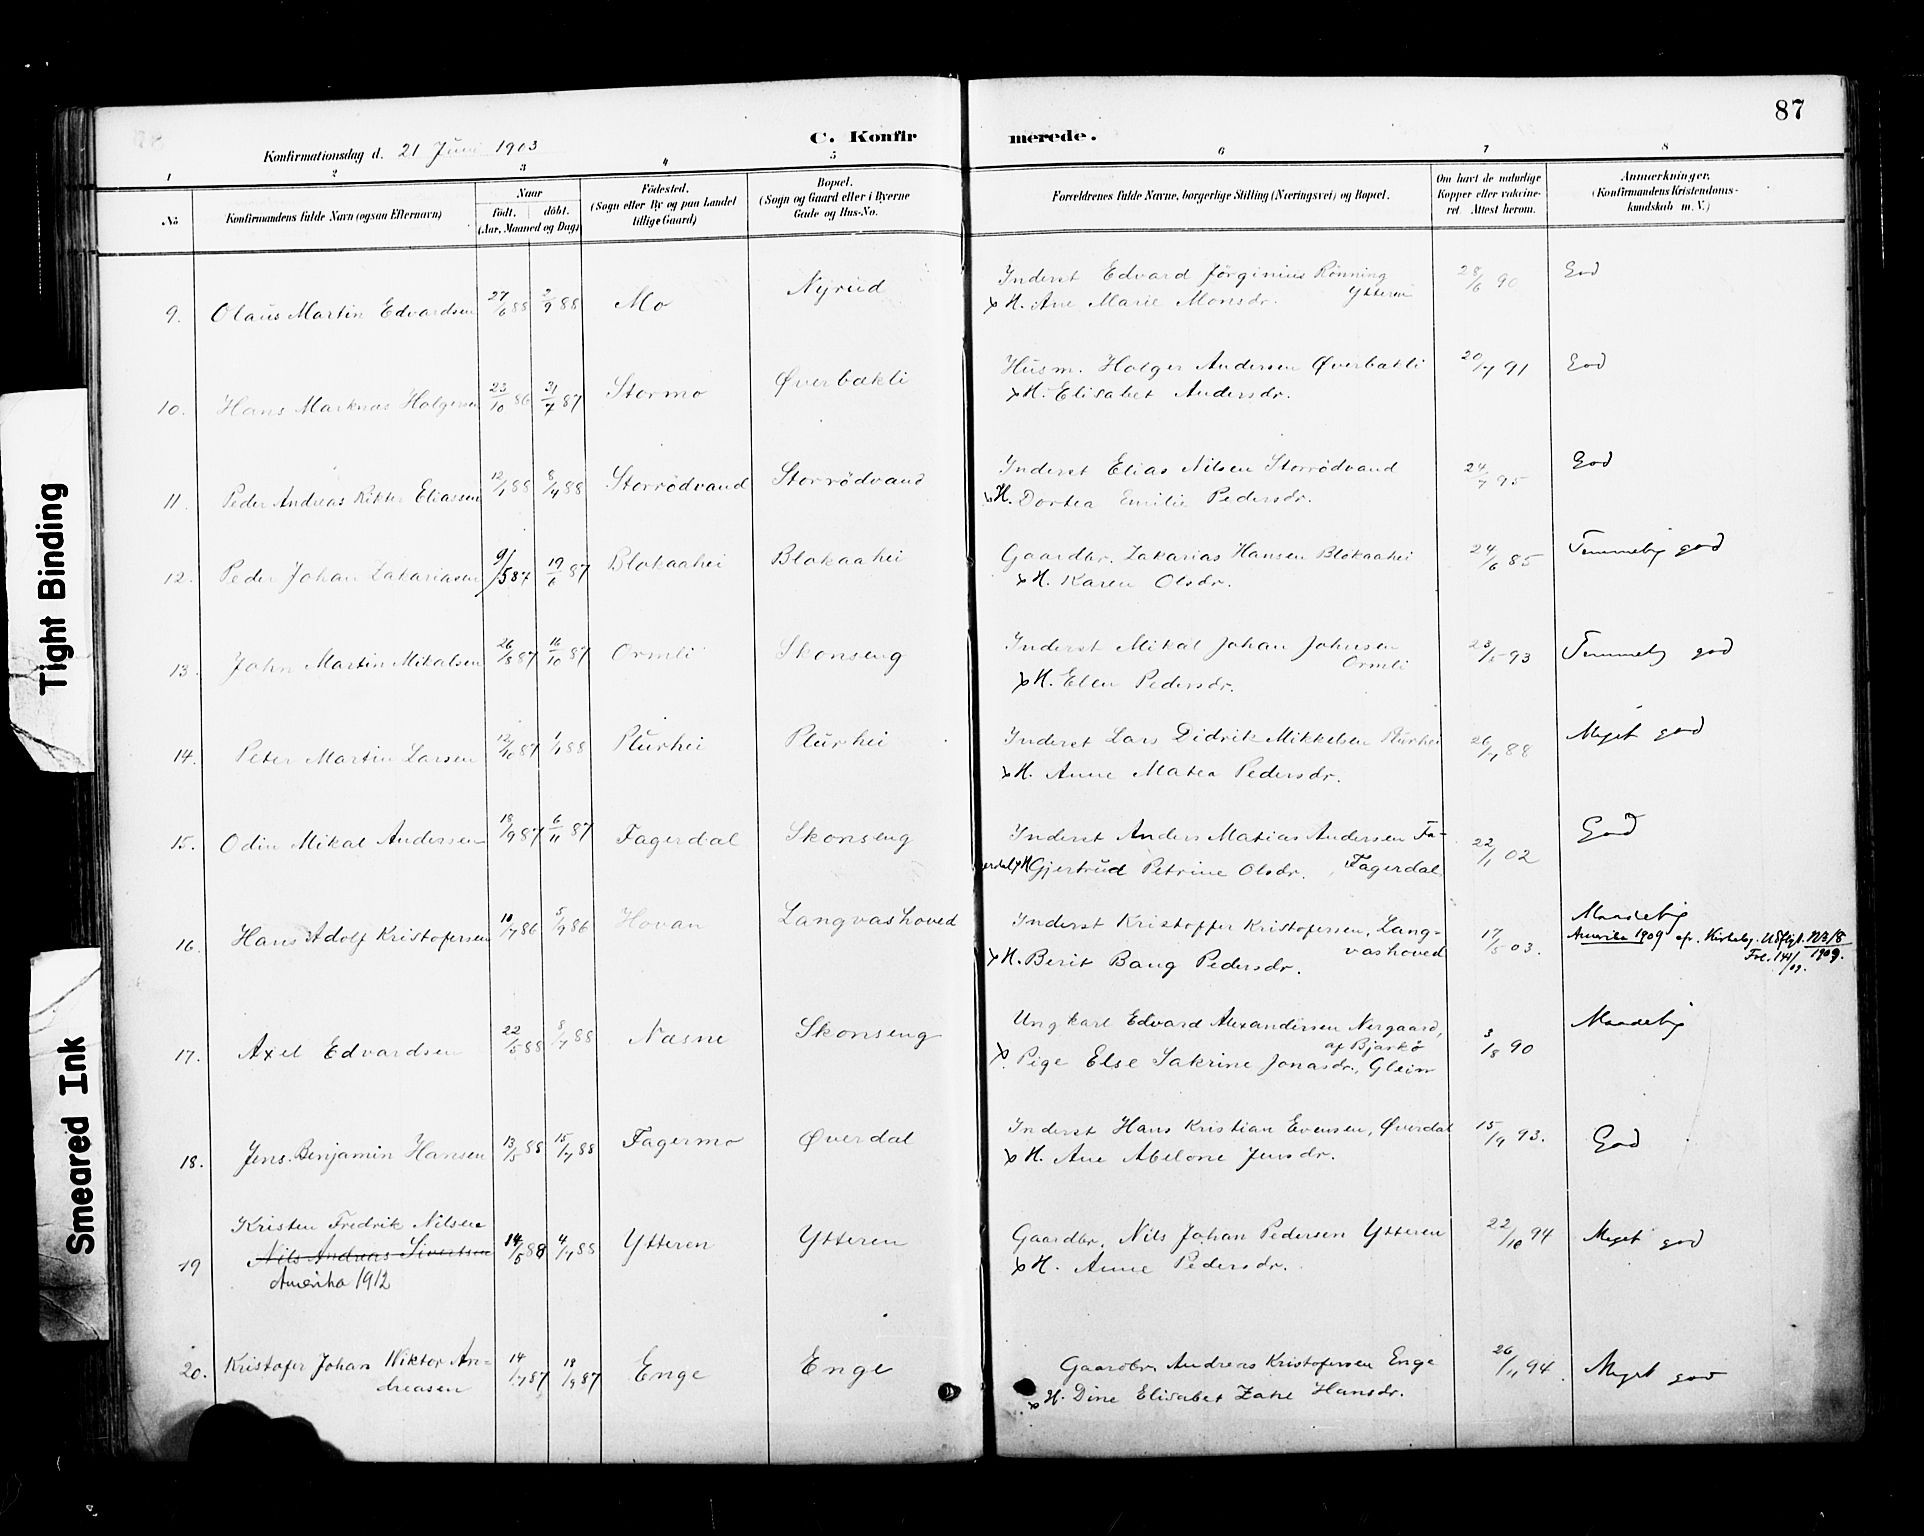 87
C. Konfirmerede.
Konfirmationsdag d. 21 Juni 1903
1 2 3 4 5 6 7 8
No
Konfirmandens fulde Navn (ogsaa Efternavn)
Naar
født. døbt.
(Aar, Maaned og Dag)
Fødested.
(Sogn eller By og paa Landet
tillige Gaard)
Bopæl.
(Sogn og Gaard eller i Byerne
Gade og Hus-No.
Forældrenes fulde Navne, borgerlige Stilling (Næringsvei) og Bopæl.
Om havt de naturlige
Kopper eller vakcine-
ret Attest herom.
Anmærkninger,
(Konfirmandens Kristendoms-
kundskab m. V.)
9. Olaus Martin Edvardsen 27/6 88 2/9 88 Mo Nyrud Inderst Edvard Jörginius Rönning Ytteren 28/6 90 God
& H. Ane Marie Monsdr.
10. Hans Marknas Holgersen 23/10 86 31/7 87 Stormo Øverbakli Husm. Holger Andersen Øverbakli 20/7 91 God
& H. Elisabet Andersdr.
11. Peder Andreas Rikter Eliassen 12/1 88 8/4 88 Storrödvand Storrödvand Inderst Elias Nilsen Storrödvand 24/7 95 God
& H. Dortea Emilie Pedersdr.
12. Peder Johan Zakariasen 9/5 87 19/6 87 Blokaahei Blakaahei Gaardbr. Zakarias Hansen Blakaahei 24/6 85 Temmelig god
& H. Karen Olsdr.
13. John Martin Mikalsen 26/8 87 16/10 87 Ormli Skonseng Inderst Mikal Johan Johnsen Ormli 23/5 93 Temmelig god
& H. Ellen Pedersdr.
14. Peter Martin Larsen 12/10 87 1/1 88 Plurhei Plurhei Inderst Lars Didrik Mikkelsen Plurhei 26/7 88 Meget god
& H. Anne Matea Pedersdr.
15. Odin Mikal Anderssen 18/9 87 6/11 87 Fagerdal Skonseng Inderst Anders Matias Andersen Fa- 22/1 02 God
gerdal & H Gjertrud Petrine Olsdr. Fagerdal
16. Hans Adolf Kristofersen 10/7 86 5/9 86 Hovan Langvashoved Inderst Kristoffer Kristofersen, Lang- 17/5 03. Maadelig
vashoved
& H. Berit Baug Pedersdr.
Amerika 1909
1909.
17. Axel Edvardsen 22/5 88 8/7 88 Næsne Skonseng Ungkarl Edvard Alexandersen Nergaard, 3/8 90 Maadelig
af Bjarkö
& Pige Else Sakrine Jonasdr., Glein
18. Jens Benjamin Hansen 13/5 88 15/7 88 Fagermo Øverdal Inderst Hans Kristian Evensen, Øverdal 15/9 93. God
& H. Ane Abelone Jensdr.
19 Kristen Fredrik Nilsen 14/5 88 4/7 88 Ytteren Ytteren Gaardbr. Nils Johan Pedersen Ytteren 22/10 94 Meget god
Nils Andreas Sivertsen
Amerika 1912
& H. Anne Pedersdr.
20. Kristofer Johan Wiktor An- 14/7 87 18/9 87 Enge Enge Gaardbr. Andreas Kristofersen Enge 26/1 94 Meget god
dreasen
& H. Dine Elisabet Zahl Hansdr.
Tight Binding
Smeared Ink